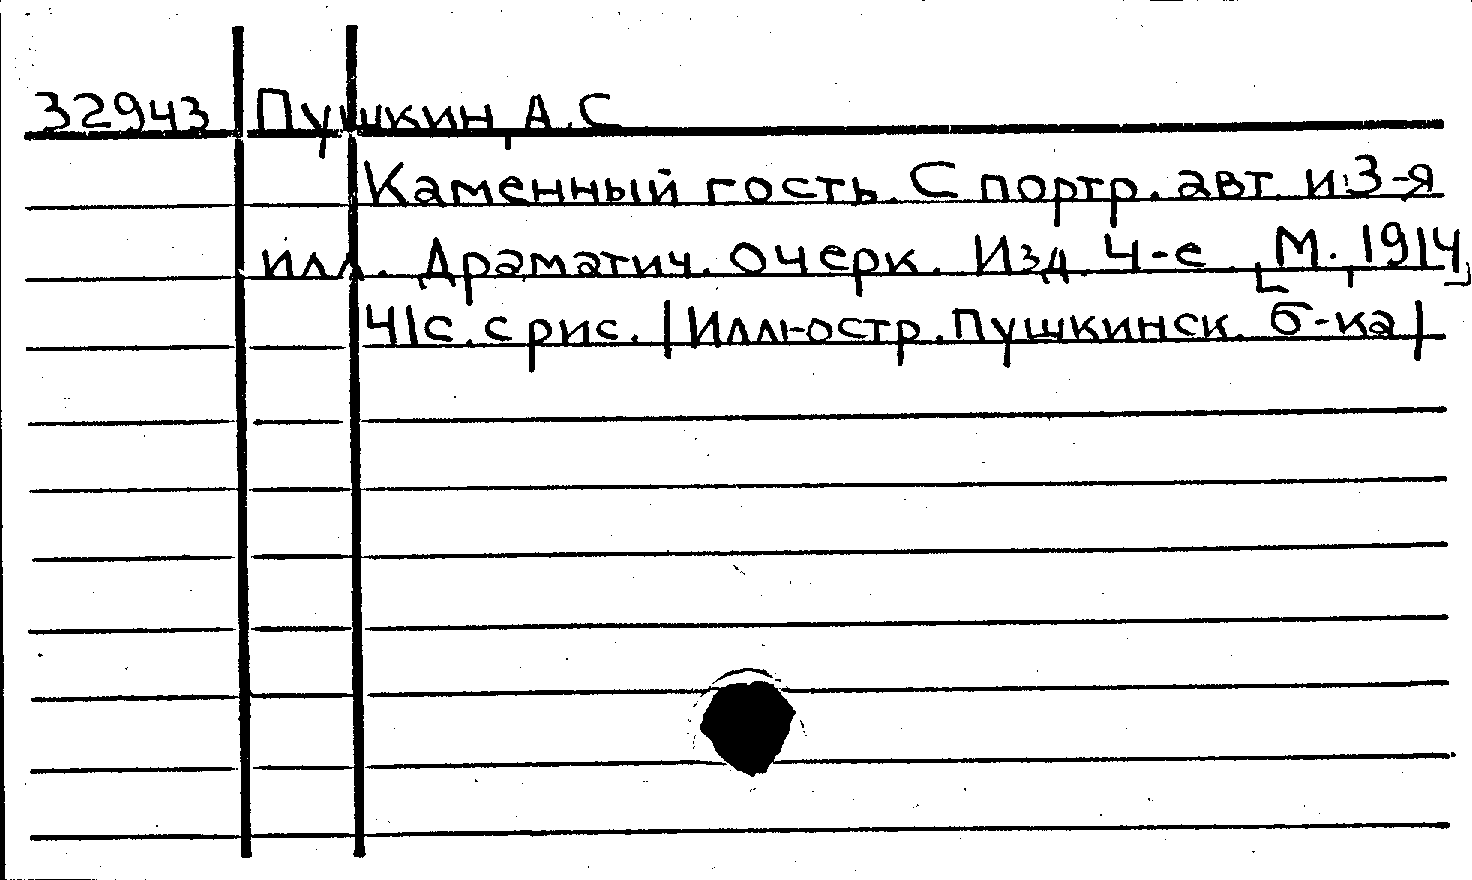 32943 Пушкин, А.С.
Каменный гость. С портр. авт. и 3-я
илл. Драматич. очерк. Изд. 4-е. [М., 1914]
41с. с рис. |Иллюстр. Пушкинск. б-ка|